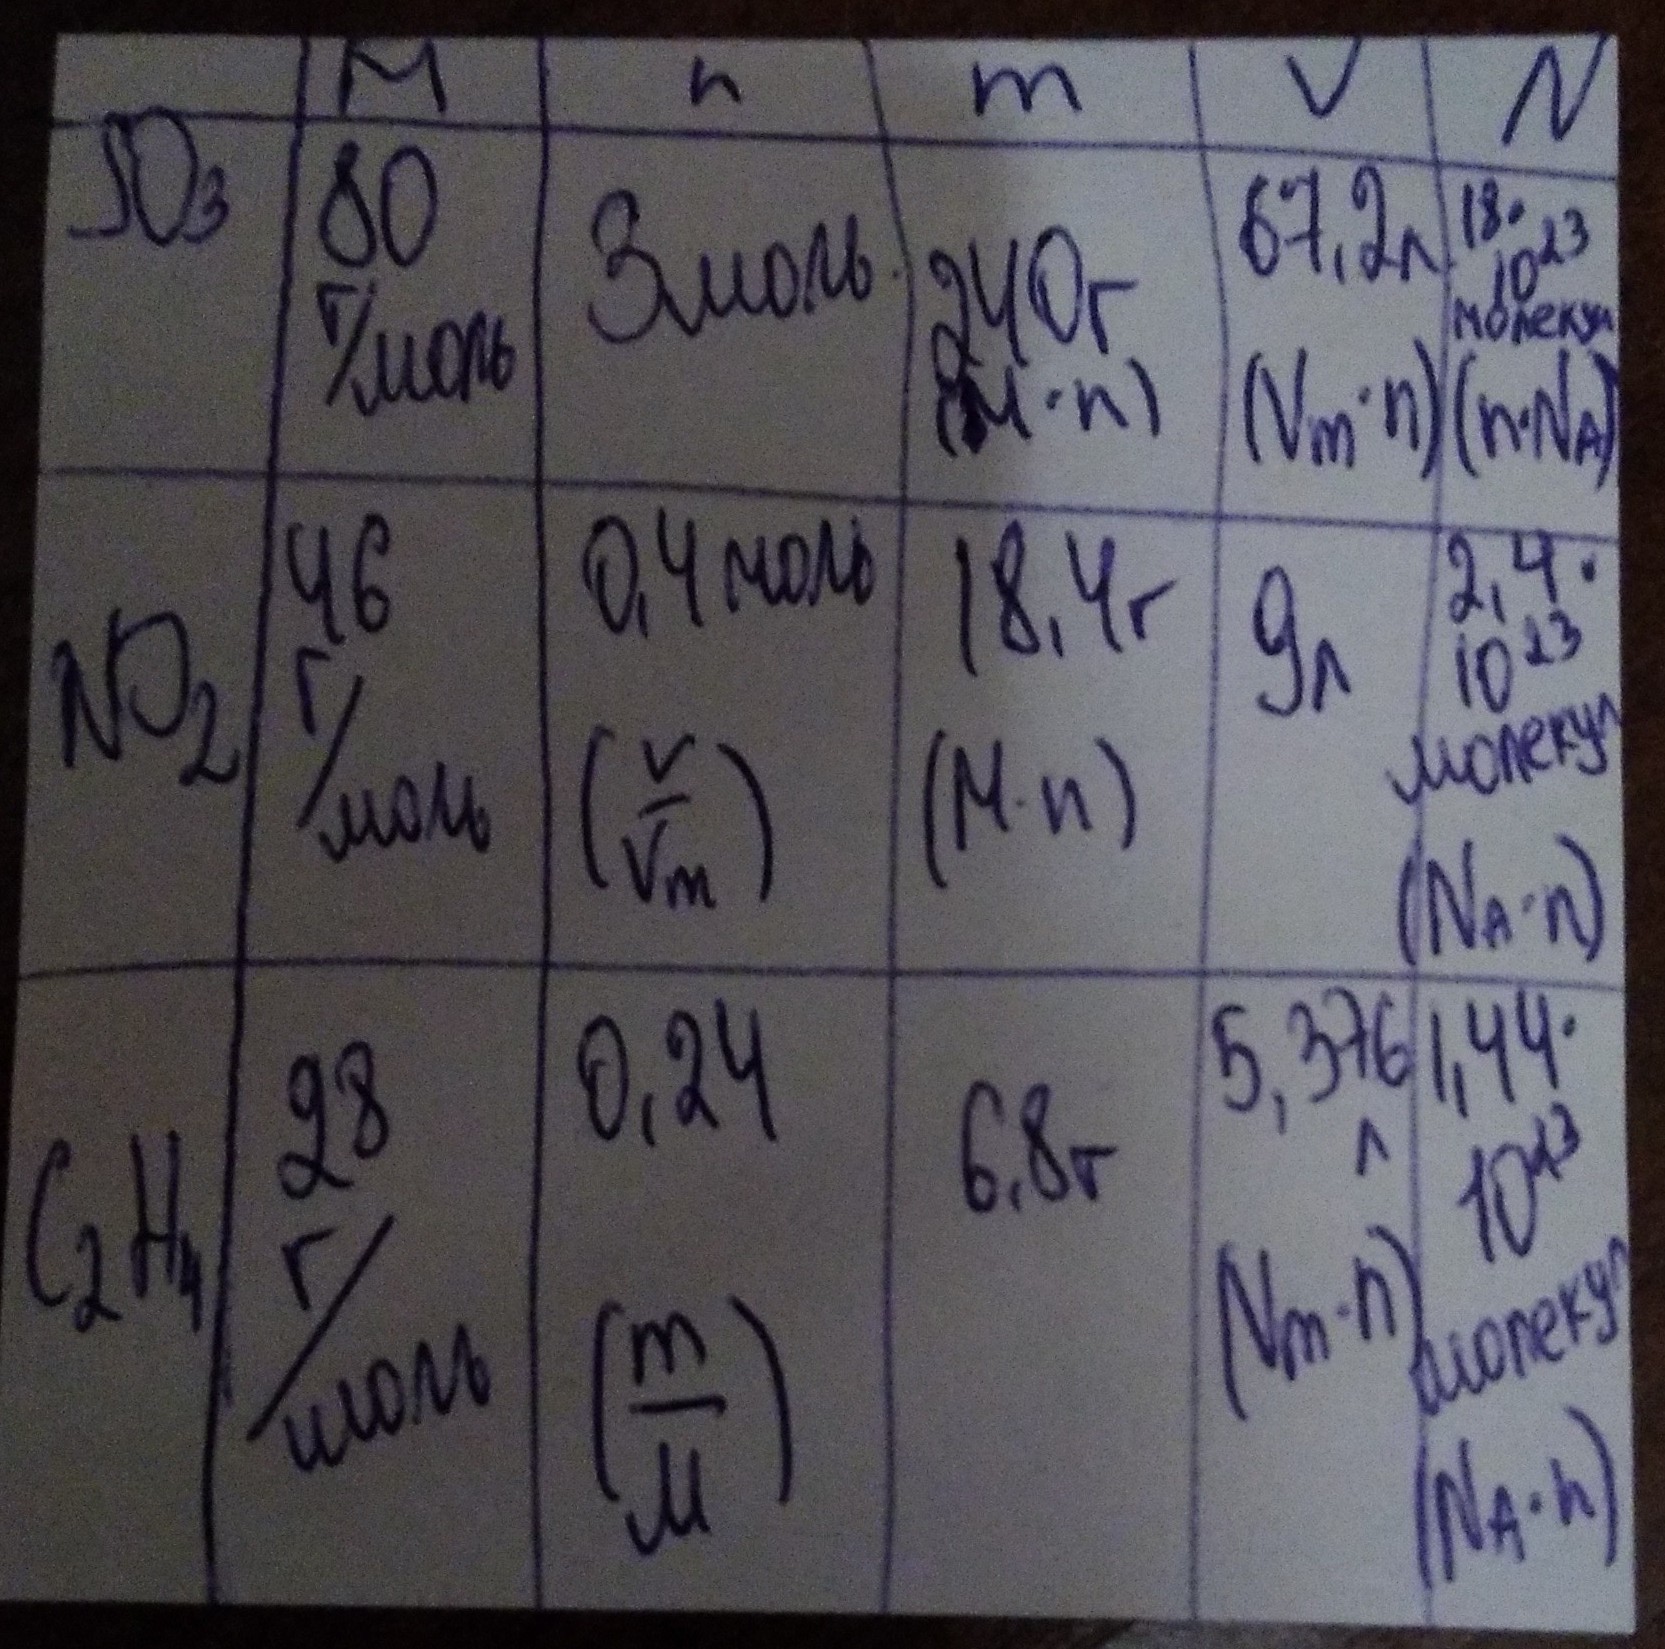 M n m V N
SO₃ 80 г/моль 3моль 240г (M·n) 67,2л (Vm·n) 18·10²³ молекул (n·NA)
NO₂ 46 г/моль 0,4 моль (V/Vm) 18,4г (M·n) 9л 2,4·10²³ молекул (NA·n)
C₂H₄ 28 г/моль 0,24 (m/M) 6,8г 5,376 л (Vm·n) 1,44·10²³ молекул (NA·n)